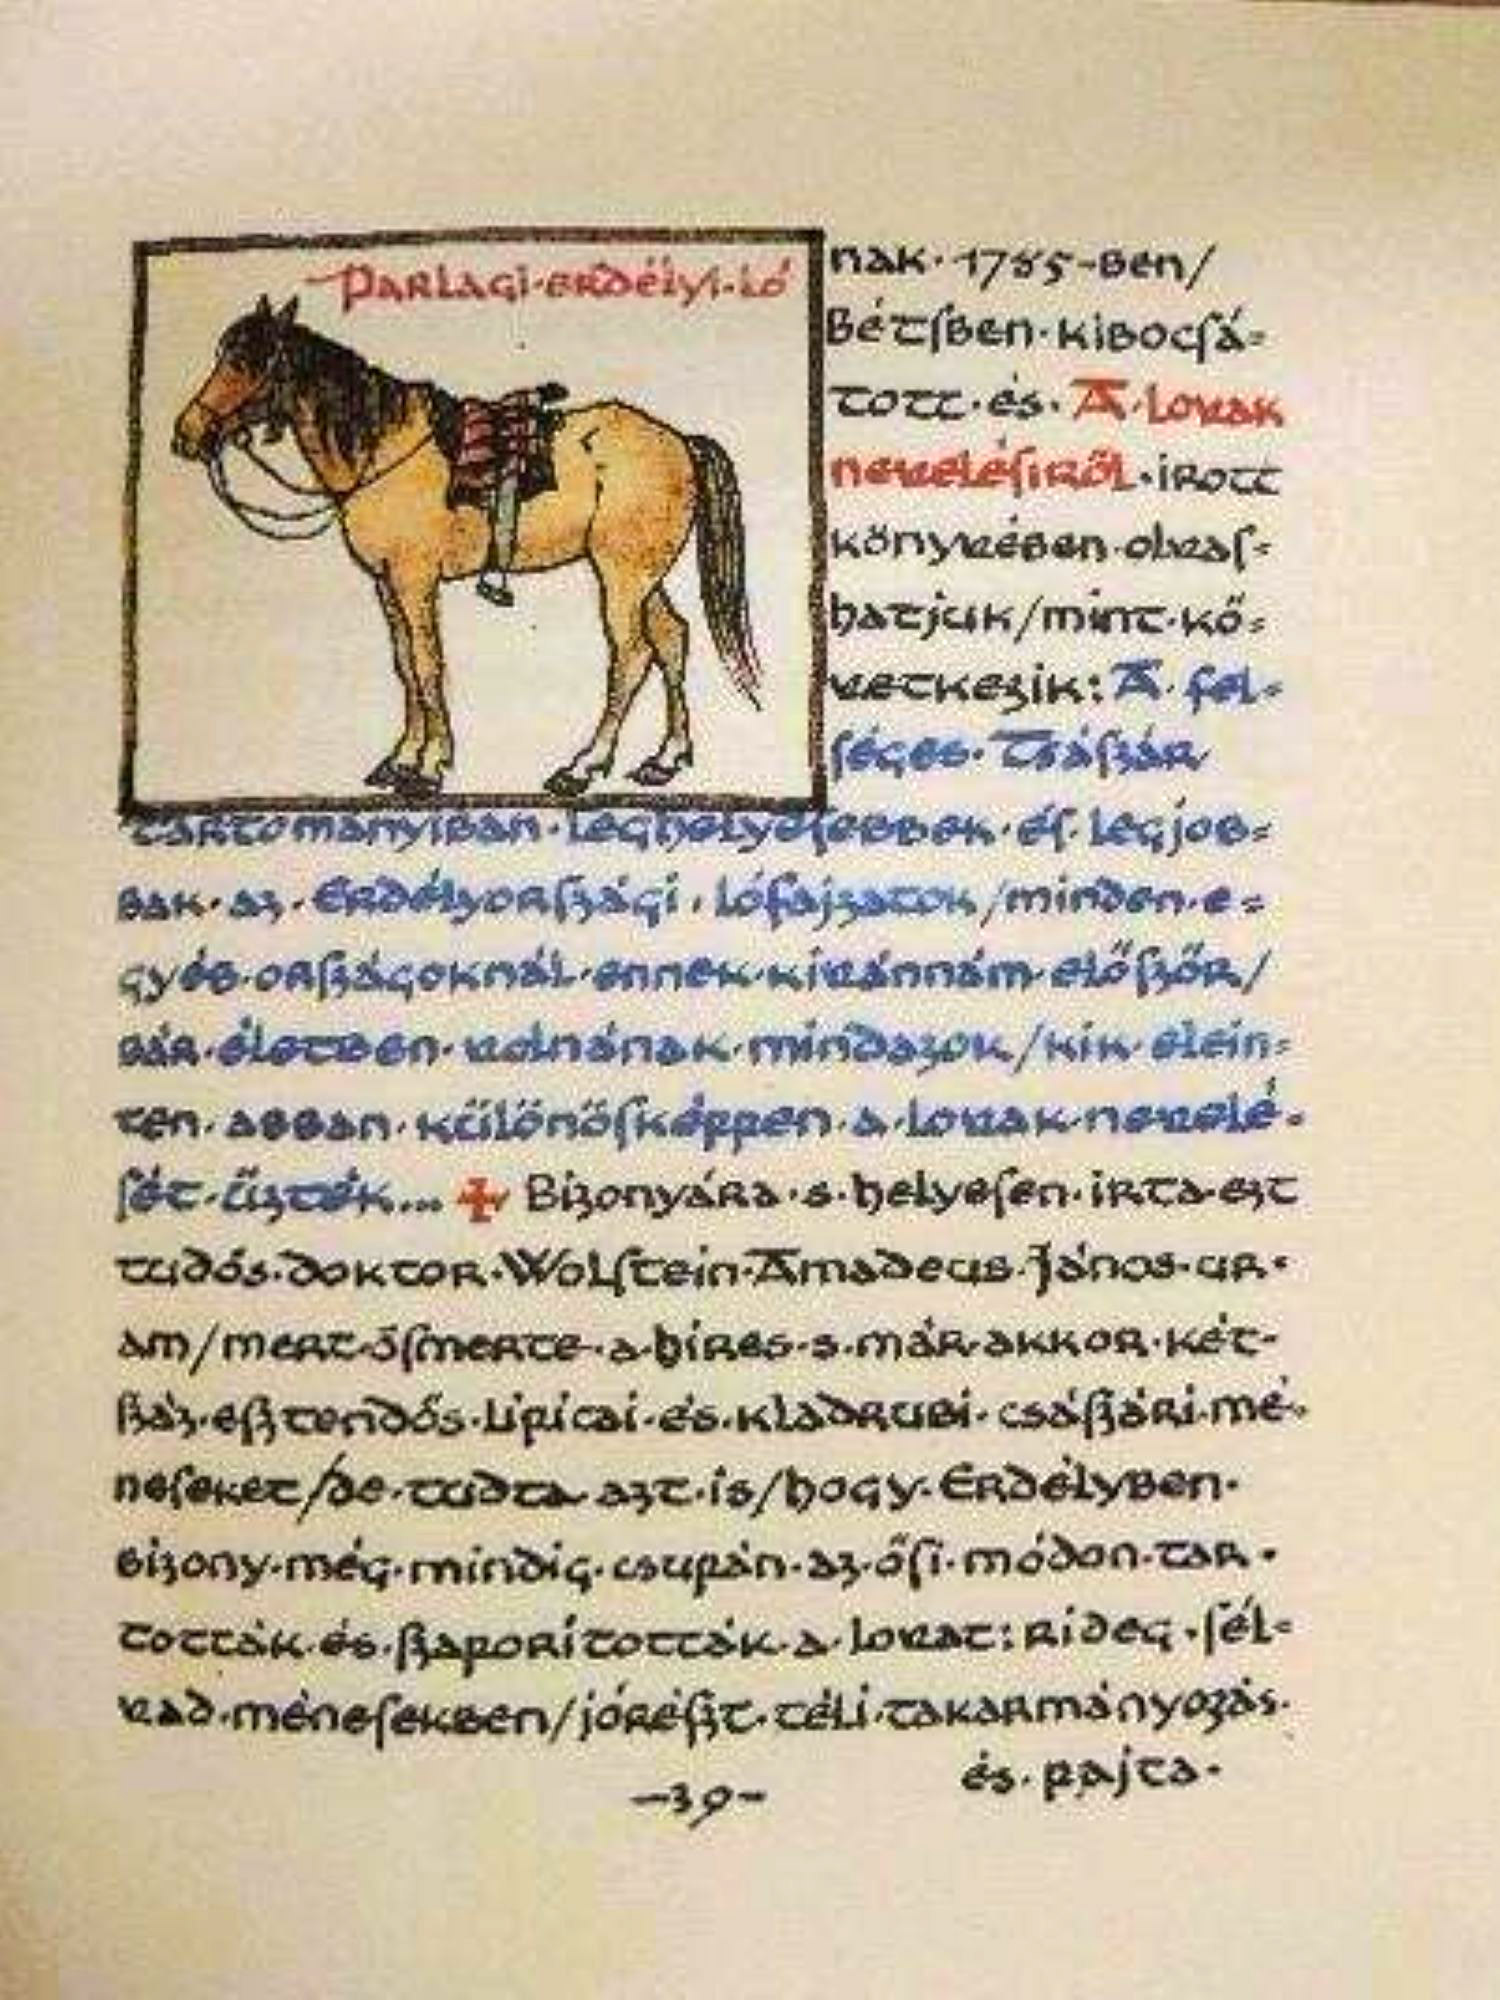 Parlagi·erdélyi·ló
nak·1785-ben/
Bétſben·kibocſá=
tott·és·A·lovak
neveléſiről·irott
könyvében·olvaſ=
hatjuk/mint·kö=
vetkezik:A·fel=
ſéges·Tsáſzár
tartományiban·leghelyeſebbek·éſ·legjob=
bak·az·Erdélyorſzági·lófajzatok/minden·e=
gyéb·orſzágoknál·ennek·kivánnám·előſzőr/
bár·életben·volnának·mindazok/kik·elein=
ten·abban·különöſképpen·a·lovak·nevelé=
ſét·űzték... Bizonyára·s·helyeſen·irta·ezt
tudós·doktor·Wolſtein·Amadeus·János·ur=
am/mert·őſmerte·a·híres·s·már·akkor·két=
ſzáz·eſztendős·lipicai·és·kladrubi·csáſzári·mé=
neſeket/de·tudta·azt·is/hogy·Erdélyben·
bizony·még·mindig·csupán·az·őſi·módon·tar=
tották·és·ſzaporították·a·lovat:rideg·ſél=
vad·méneſekben/jóréſzt·téli·takarmányozás·
és·pajta·
-39-